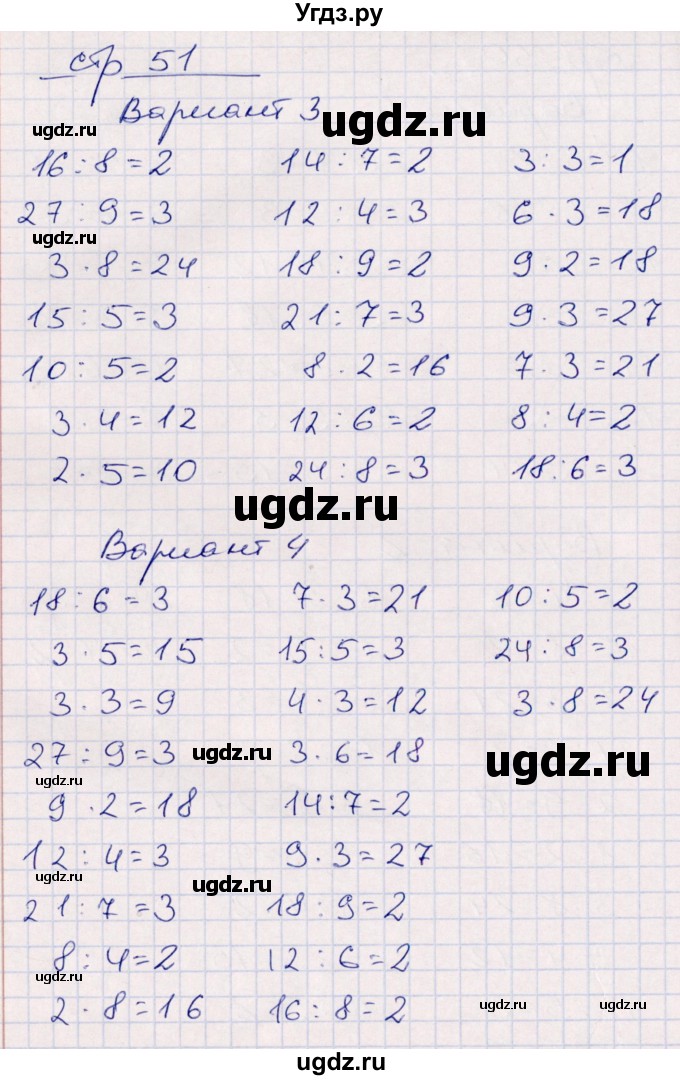 Угдз.ру
стр 51
Вариант 3
ugdz.ru
ugdz.ru
16 : 8 = 2 14 : 7 = 2 3 : 3 = 1
27 : 9 = 3 12 : 4 = 3 6 · 3 = 18
ugdz.ru
3 · 8 = 24 18 : 9 = 2 9 · 2 = 18
15 : 5 = 3 21 : 7 = 3 9 · 3 = 27
10 : 5 = 2 8 · 2 = 16 7 · 3 = 21
3 · 4 = 12 12 : 6 = 2 8 : 4 = 2
2 · 5 = 10 24 : 8 = 3 18 : 6 = 3
ugdz.ru
Вариант 4
18 : 6 = 3 7 · 3 = 21 10 : 5 = 2
3 · 5 = 15 15 : 5 = 3 24 : 8 = 3
3 · 3 = 9 4 · 3 = 12 3 · 8 = 24
27 : 9 = 3 ugdz.ru 3 · 6 = 18 ugdz.ru
ugdz.ru
9 · 2 = 18 14 : 7 = 2
12 : 4 = 3 9 · 3 = 27
ugdz.ru ugdz.ru
21 : 7 = 3 18 : 9 = 2
8 : 4 = 2 12 : 6 = 2
ugdz.ru
2 · 8 = 16 16 : 8 = 2 ugdz.ru ugdz.ru
ugdz.ru